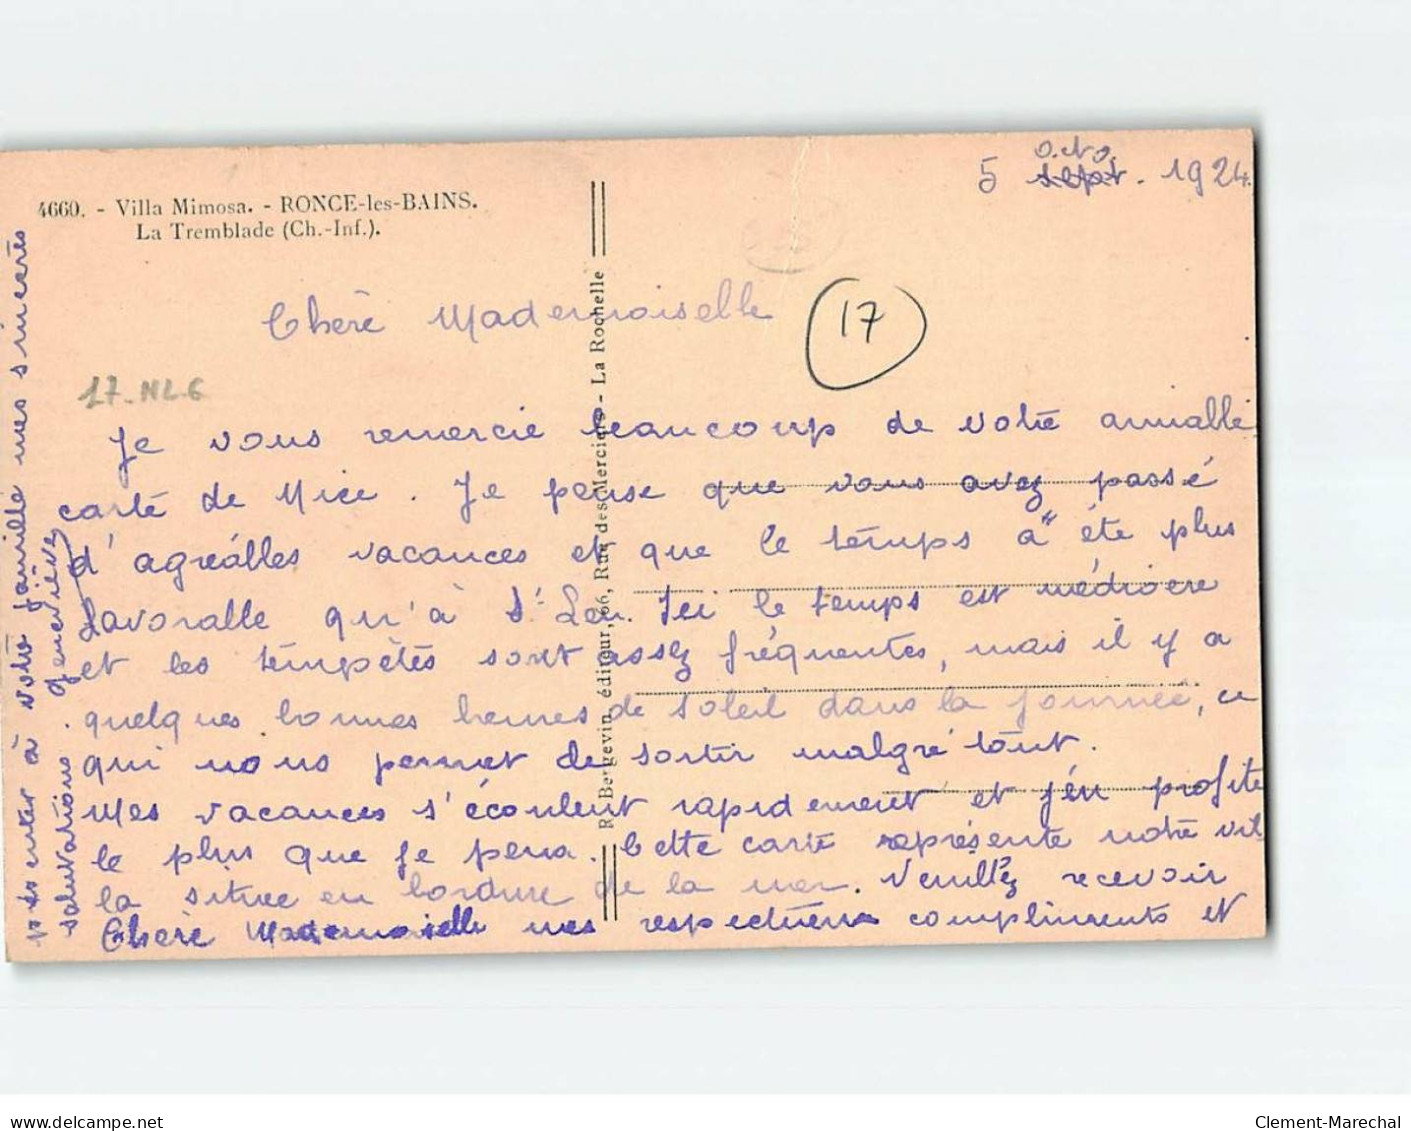 4660. - Villa Mimosa. - RONCE-les-BAINS.
La Tremblade (Ch.-Inf.).
R. Bergevin, éditeur, 66, Rue des Merciers - La Rochelle
5 octo. sept. 1924.
17
17-NL6
Chère Mademoiselle
Je vous remercie beaucoup de votre aimable
carte de Nice. Je pense que vous avez passé
d'agréables vacances et que le temps a été plus
favorable qu'à St. Leu. Ici le temps est médiocre
et les tempêtes sont assez fréquentes, mais il y a
quelques bonnes heures de soleil dans la journée, ce
qui nous permet de sortir malgré tout.
Mes vacances s'écoulent rapidement et j'en profite
le plus que je peux. Cette carte représente notre vil
la située en bordure de la mer. Veuillez recevoir
Chère Mademoiselle mes respectueux compliments et
présenter à votre famille mes sincères
salutations. Geneviève
www.delcampe.net
Clement-Marechal